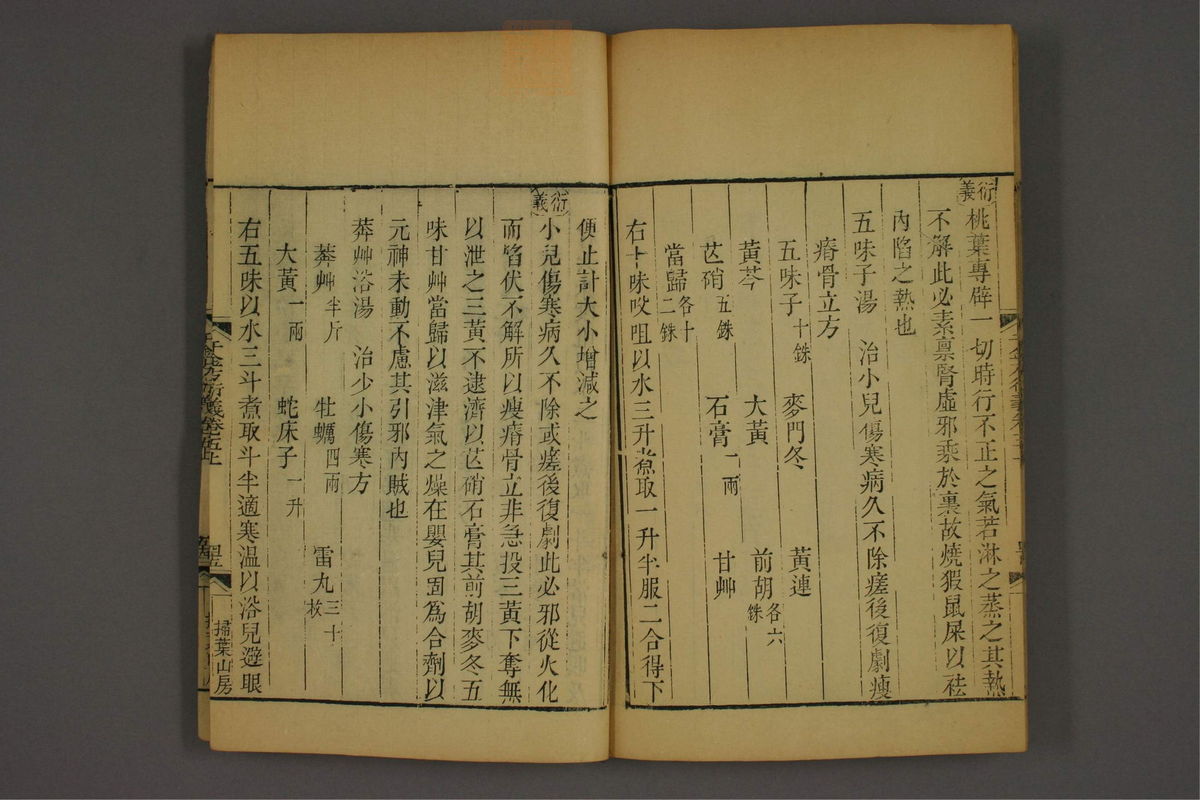 衍義
桃葉專辟一切時行不正之氣若淋之蒸之其熱
不解此必素稟腎虛邪乘於裏故燒猳鼠屎以祛
內陷之熱也
五味子湯 治小兒傷寒病久不除瘥後復劇瘦
瘠骨立方
五味子十銖 麥門冬 黃連
黃芩 大黃 前胡各六銖
芒硝五銖 石膏一兩 甘艸
當歸各十二銖
右十味㕮咀以水三升煮取一升半服二合得下
便止計大小增減之
衍義
小兒傷寒病久不除或瘥後復劇此必邪從火化
而陷伏不解所以瘦瘠骨立非急投三黃下奪無
以泄之三黃不逮濟以芒硝石膏其前胡麥冬五
味甘艸當歸以滋津氣之燥在嬰兒固爲合劑以
元神未動不慮其引邪內賊也
莽艸浴湯 治少小傷寒方
莽艸半斤 牡蠣四兩 雷丸三十枚
大黃一兩 蛇床子一升
右五味以水三斗煮取斗半適寒溫以浴兒避眼
千金方衍義卷五上
掃葉山房